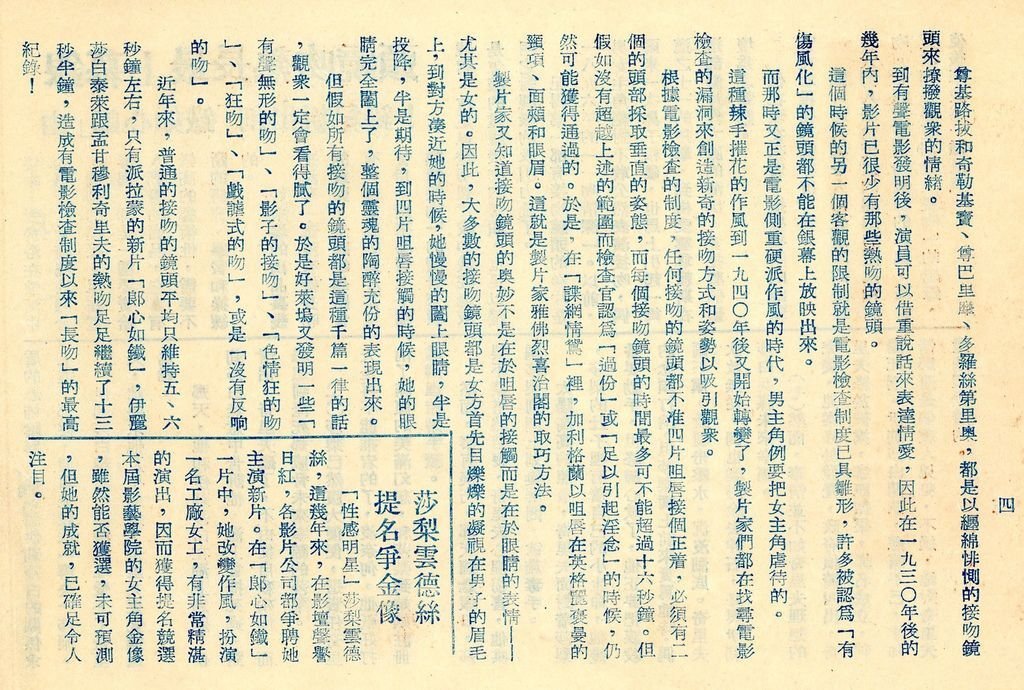 四
尊基路拔和奇勒基寶、尊巴里摩、多羅絲第里奧，都是以纒綿悱惻的接吻鏡
頭來撩撥觀衆的情緒。
到有聲電影發明後，演員可以借重說話來表達情愛，因此在一九三〇年後的
幾年內，影片已很少有那些熱吻的鏡頭。
這個時候的另一個客觀的限制就是電影檢查制度已具雛形，許多被認爲「有
傷風化」的鏡頭都不能在銀幕上放映出來。
而那時又正是電影側重硬派作風的時代，男主角例要把女主角虐待的。
這種辣手摧花的作風到一九四〇年後又開始轉變了，製片家們都在找尋電影
檢查的漏洞來創造新奇的接吻方式和姿勢以吸引觀衆。
根據電影檢查的制度，任何接吻的鏡頭都不准四片咀唇接個正着，必須有二
個的頭部採取垂直的姿態，而每個接吻鏡頭的時間最多可不能超過十六秒鐘。但
假如沒有超越上述的範圍而檢查官認爲「過份」或「足以引起淫念」的時候，仍
然可能獲得通過的。於是，在「諜網情鴛」裡，加利格蘭以咀唇在英格麗褒曼的
頸項、面頰和眼眉。這就是製片家雅佛烈喜治閣的取巧方法。
製片家又知道接吻鏡頭的奥妙不是在於咀唇的接觸而是在於眼睛的表情——
尤其是女的。因此，大多數的接吻鏡頭都是女方首先目爍爍的凝視在男子的眉毛
上，到對方湊近她的時候，她慢慢的闔上眼睛，半是
投降，半是期待，到四片咀唇接觸的時候，她的眼
睛完全闔上了，整個靈魂的陶醉充份的表現出來。
但假如所有接吻的鏡頭都是這種千篇一律的話
，觀衆一定會看得膩了。於是好萊塢又發明一些「
有聲無形的吻」、「影子的接吻」、「色情狂的吻
」、「狂吻」、「戲謔式的吻」，或是「沒有反响
的吻」。
近年來，普通的接吻的鏡頭平均只維持五、六
秒鐘左右，只有派拉蒙的新片「郞心如鐵」，伊麗
莎白泰萊跟孟甘穆利奇里夫的熱吻足足繼續了十三
秒半鐘，造成有電影檢查制度以來「長吻」的最高
紀錄！
莎梨雲德絲
提名爭金像
「性感明星」莎梨雲德
絲，這幾年來，在影壇聲譽
日紅，各影片公司都爭聘她
主演新片。在「郞心如鐵」
一片中，她改變作風，扮演
一名工廠女工，有非常精湛
的演出，因而獲得提名競選
本屆影藝學院的女主角金像
，雖然能否獲選，未可預測
，但她的成就，已確足令人
注目。